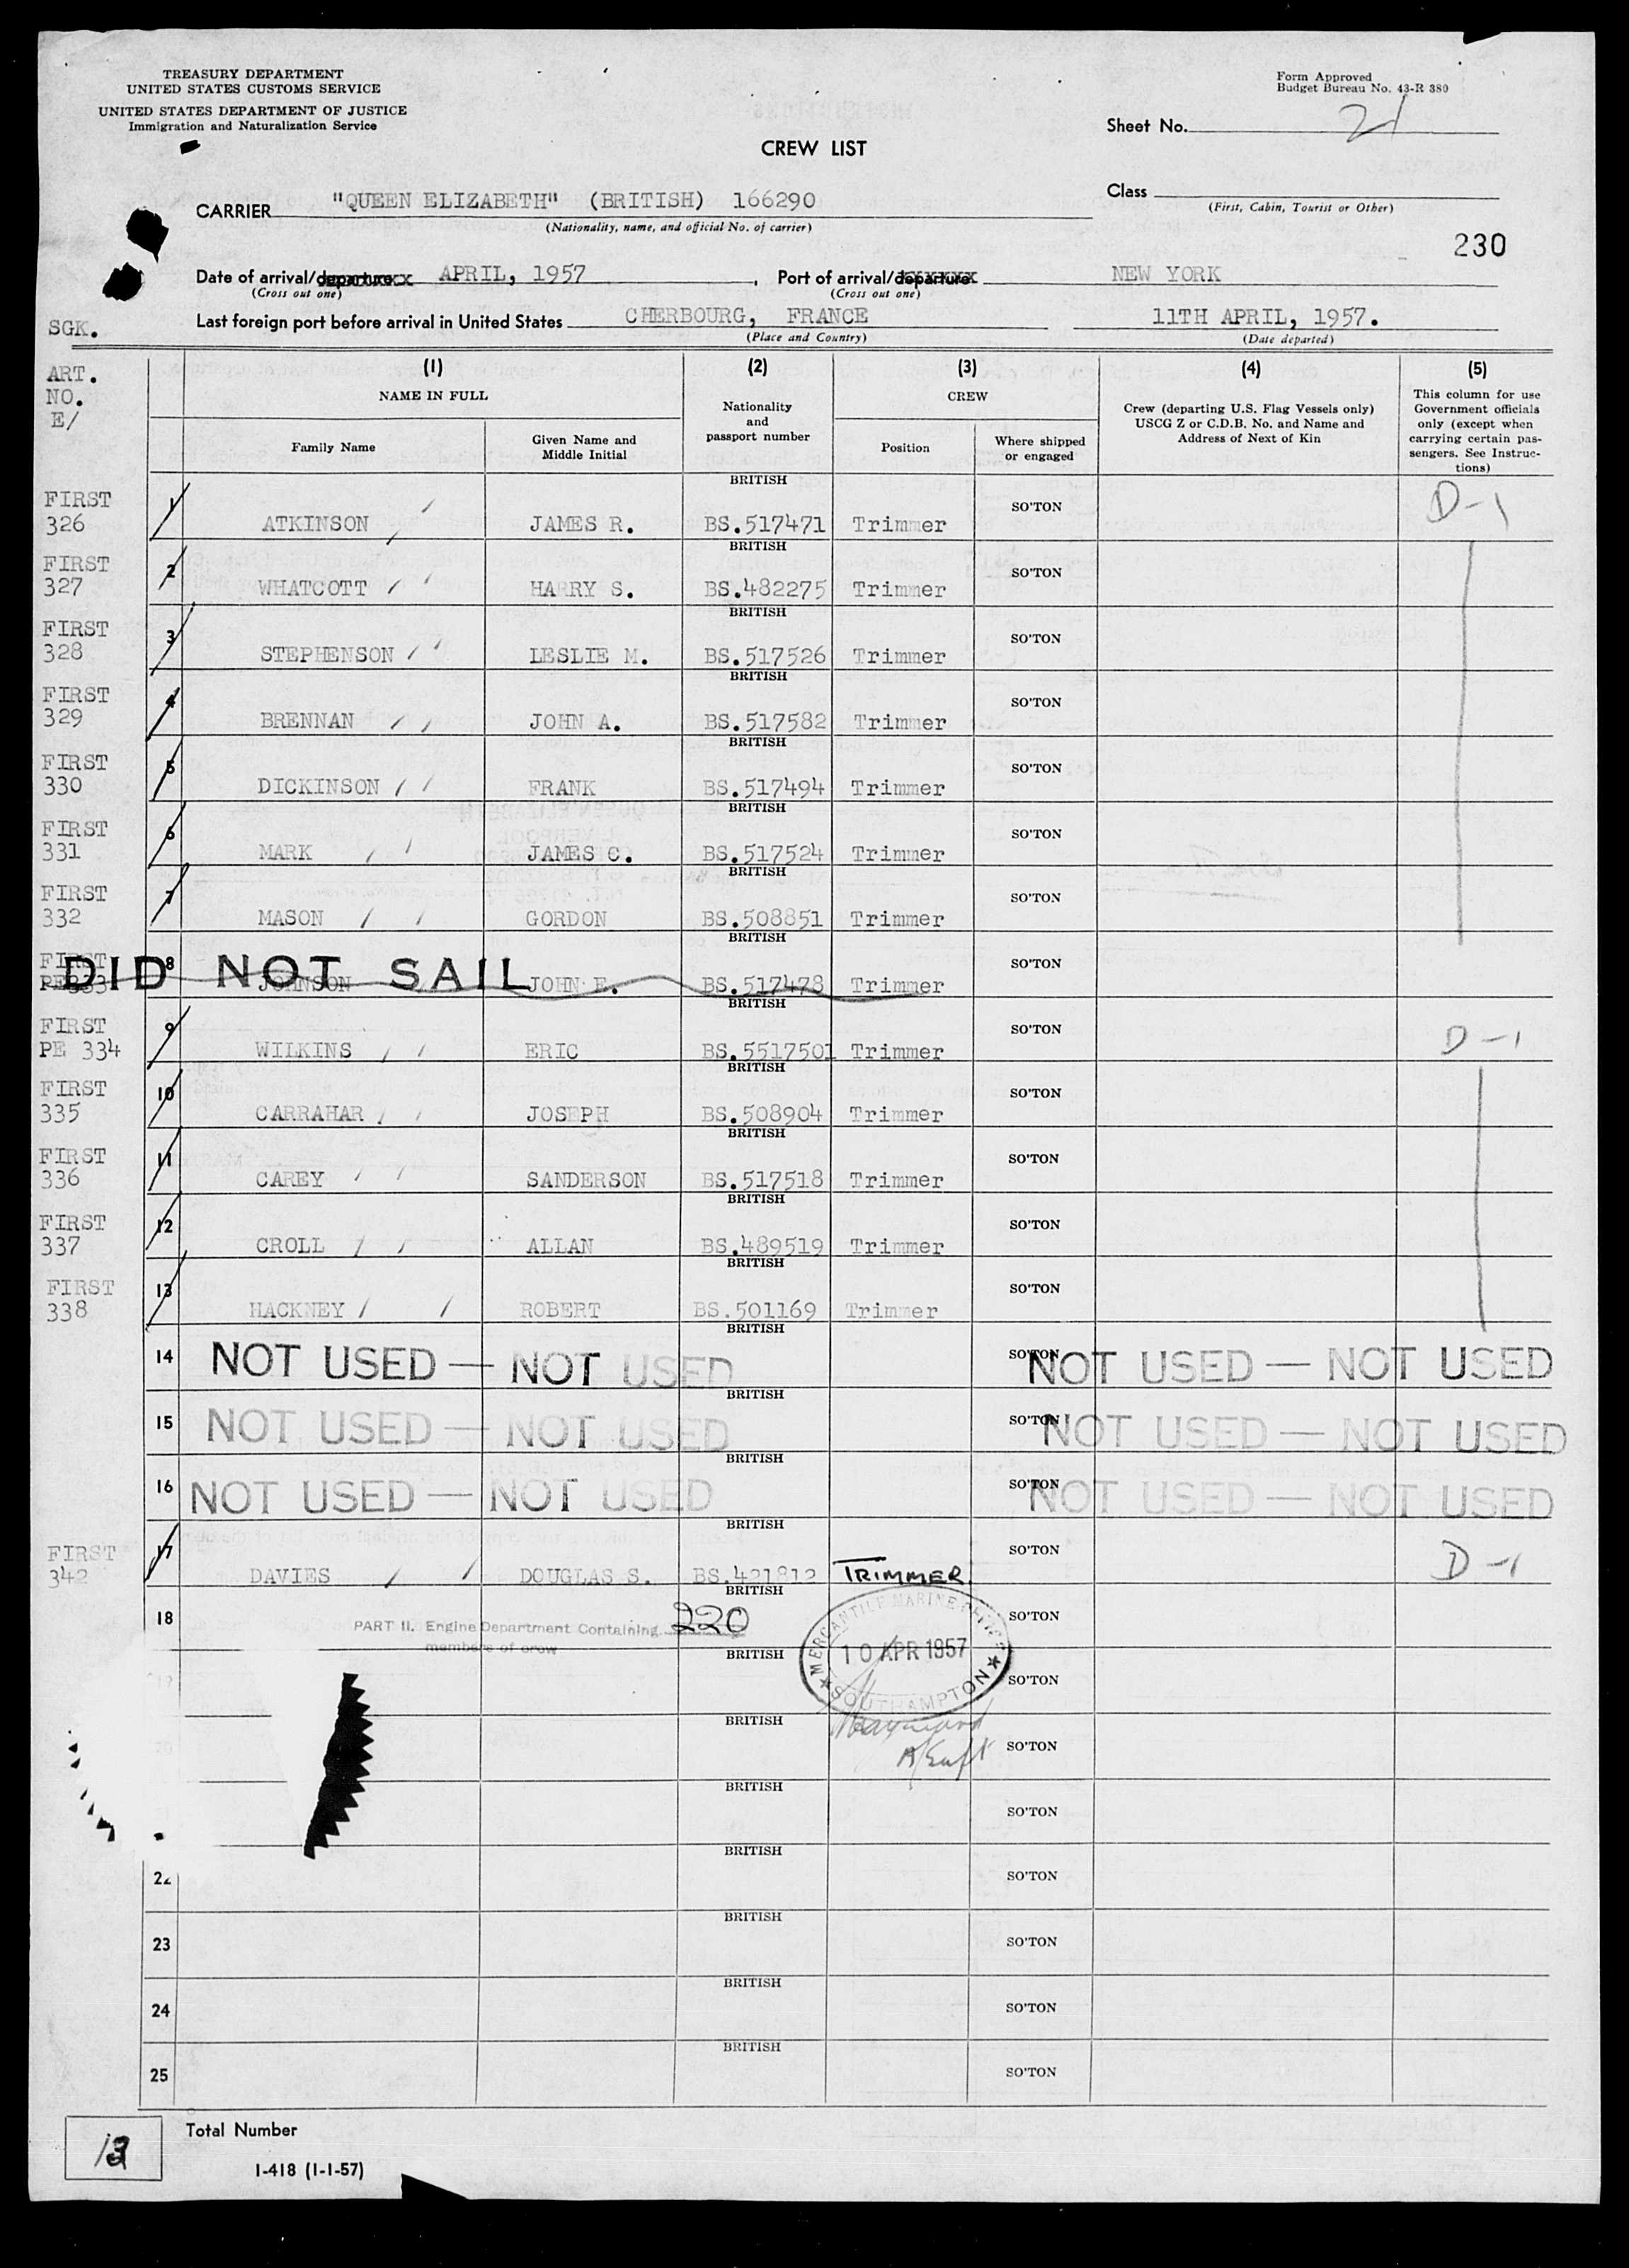 TREASURY DEPARTMENT
UNITED STATES CUSTOMS SERVICE
UNITED STATES DEPARTMENT OF JUSTICE
Immigration and Naturalization Service
Form Approved
Budget Bureau No. 43-R 380
Sheet No. 21
CREW LIST
Class
(First, Cabin, Tourist or Other)
CARRIER "QUEEN ELIZABETH" (BRITISH) 166290
(Nationality, name, and official No. of carrier)
230
Date of arrival/departure APRIL, 1957, Port of arrival/departure NEW YORK
(Cross out one) (Cross out one)
SGK. Last foreign port before arrival in United States CHERBOURG, FRANCE 11TH APRIL, 1957.
(Place and Country) (Date departed)
ART.
NO.
E/
(1) (2) (3) (4) (5)
NAME IN FULL
Family Name
Given Name and
Middle Initial
Nationality
and
passport number
CREW
Position
Where shipped
or engaged
Crew (departing U.S. Flag Vessels only)
USCG Z or C.D.B. No. and Name and
Address of Next of Kin
This column for use
Government officials
only (except when
carrying certain pas-
sengers. See Instruc-
tions)
BRITISH
FIRST 1 SO'TON D-1
326 ATKINSON JAMES R. BS.517471 Trimmer
BRITISH
FIRST 2 SO'TON
327 WHATCOTT HARRY S. BS.482275 Trimmer
BRITISH
FIRST 3 SO'TON
328 STEPHENSON LESLIE M. BS.517526 Trimmer
BRITISH
FIRST 4 SO'TON
329 BRENNAN JOHN A. BS.517582 Trimmer
BRITISH
FIRST 5 SO'TON
330 DICKINSON FRANK BS.517494 Trimmer
BRITISH
FIRST 6 SO'TON
331 MARK JAMES C. BS.517524 Trimmer
BRITISH
FIRST 7 SO'TON
332 MASON GORDON BS.508851 Trimmer
BRITISH
FIRST 8 SO'TON
DID NOT SAIL
PE 333 JOHNSON JOHN E. BS.517478 Trimmer
BRITISH
FIRST 9 SO'TON D-1
PE 334 WILKINS ERIC BS.5517501 Trimmer
BRITISH
FIRST 10 SO'TON
335 CARRAHAR JOSEPH BS.508904 Trimmer
BRITISH
FIRST 11 SO'TON
336 CAREY SANDERSON BS.517518 Trimmer
BRITISH
FIRST 12 SO'TON
337 CROLL ALLAN BS.489519 Trimmer
BRITISH
FIRST 13 SO'TON
338 HACKNEY ROBERT BS.501169 Trimmer
BRITISH
14 NOT USED — NOT USED SO'TON NOT USED — NOT USED
BRITISH
15 NOT USED — NOT USED SO'TON NOT USED — NOT USED
BRITISH
16 NOT USED — NOT USED SO'TON NOT USED — NOT USED
BRITISH
FIRST 17 SO'TON D-1
342 DAVIES DOUGLAS S. BS.421812 TRIMMER
BRITISH
18 PART II. Engine Department Containing 220 SO'TON
members of crew
MERCANTILE MARINE OFFICE
10 APR 1957
SOUTHAMPTON
BRITISH
SO'TON
BRITISH
SO'TON
BRITISH
SO'TON
BRITISH
22 SO'TON
BRITISH
23 SO'TON
BRITISH
24 SO'TON
BRITISH
25 SO'TON
13 Total Number
I-418 (1-1-57)